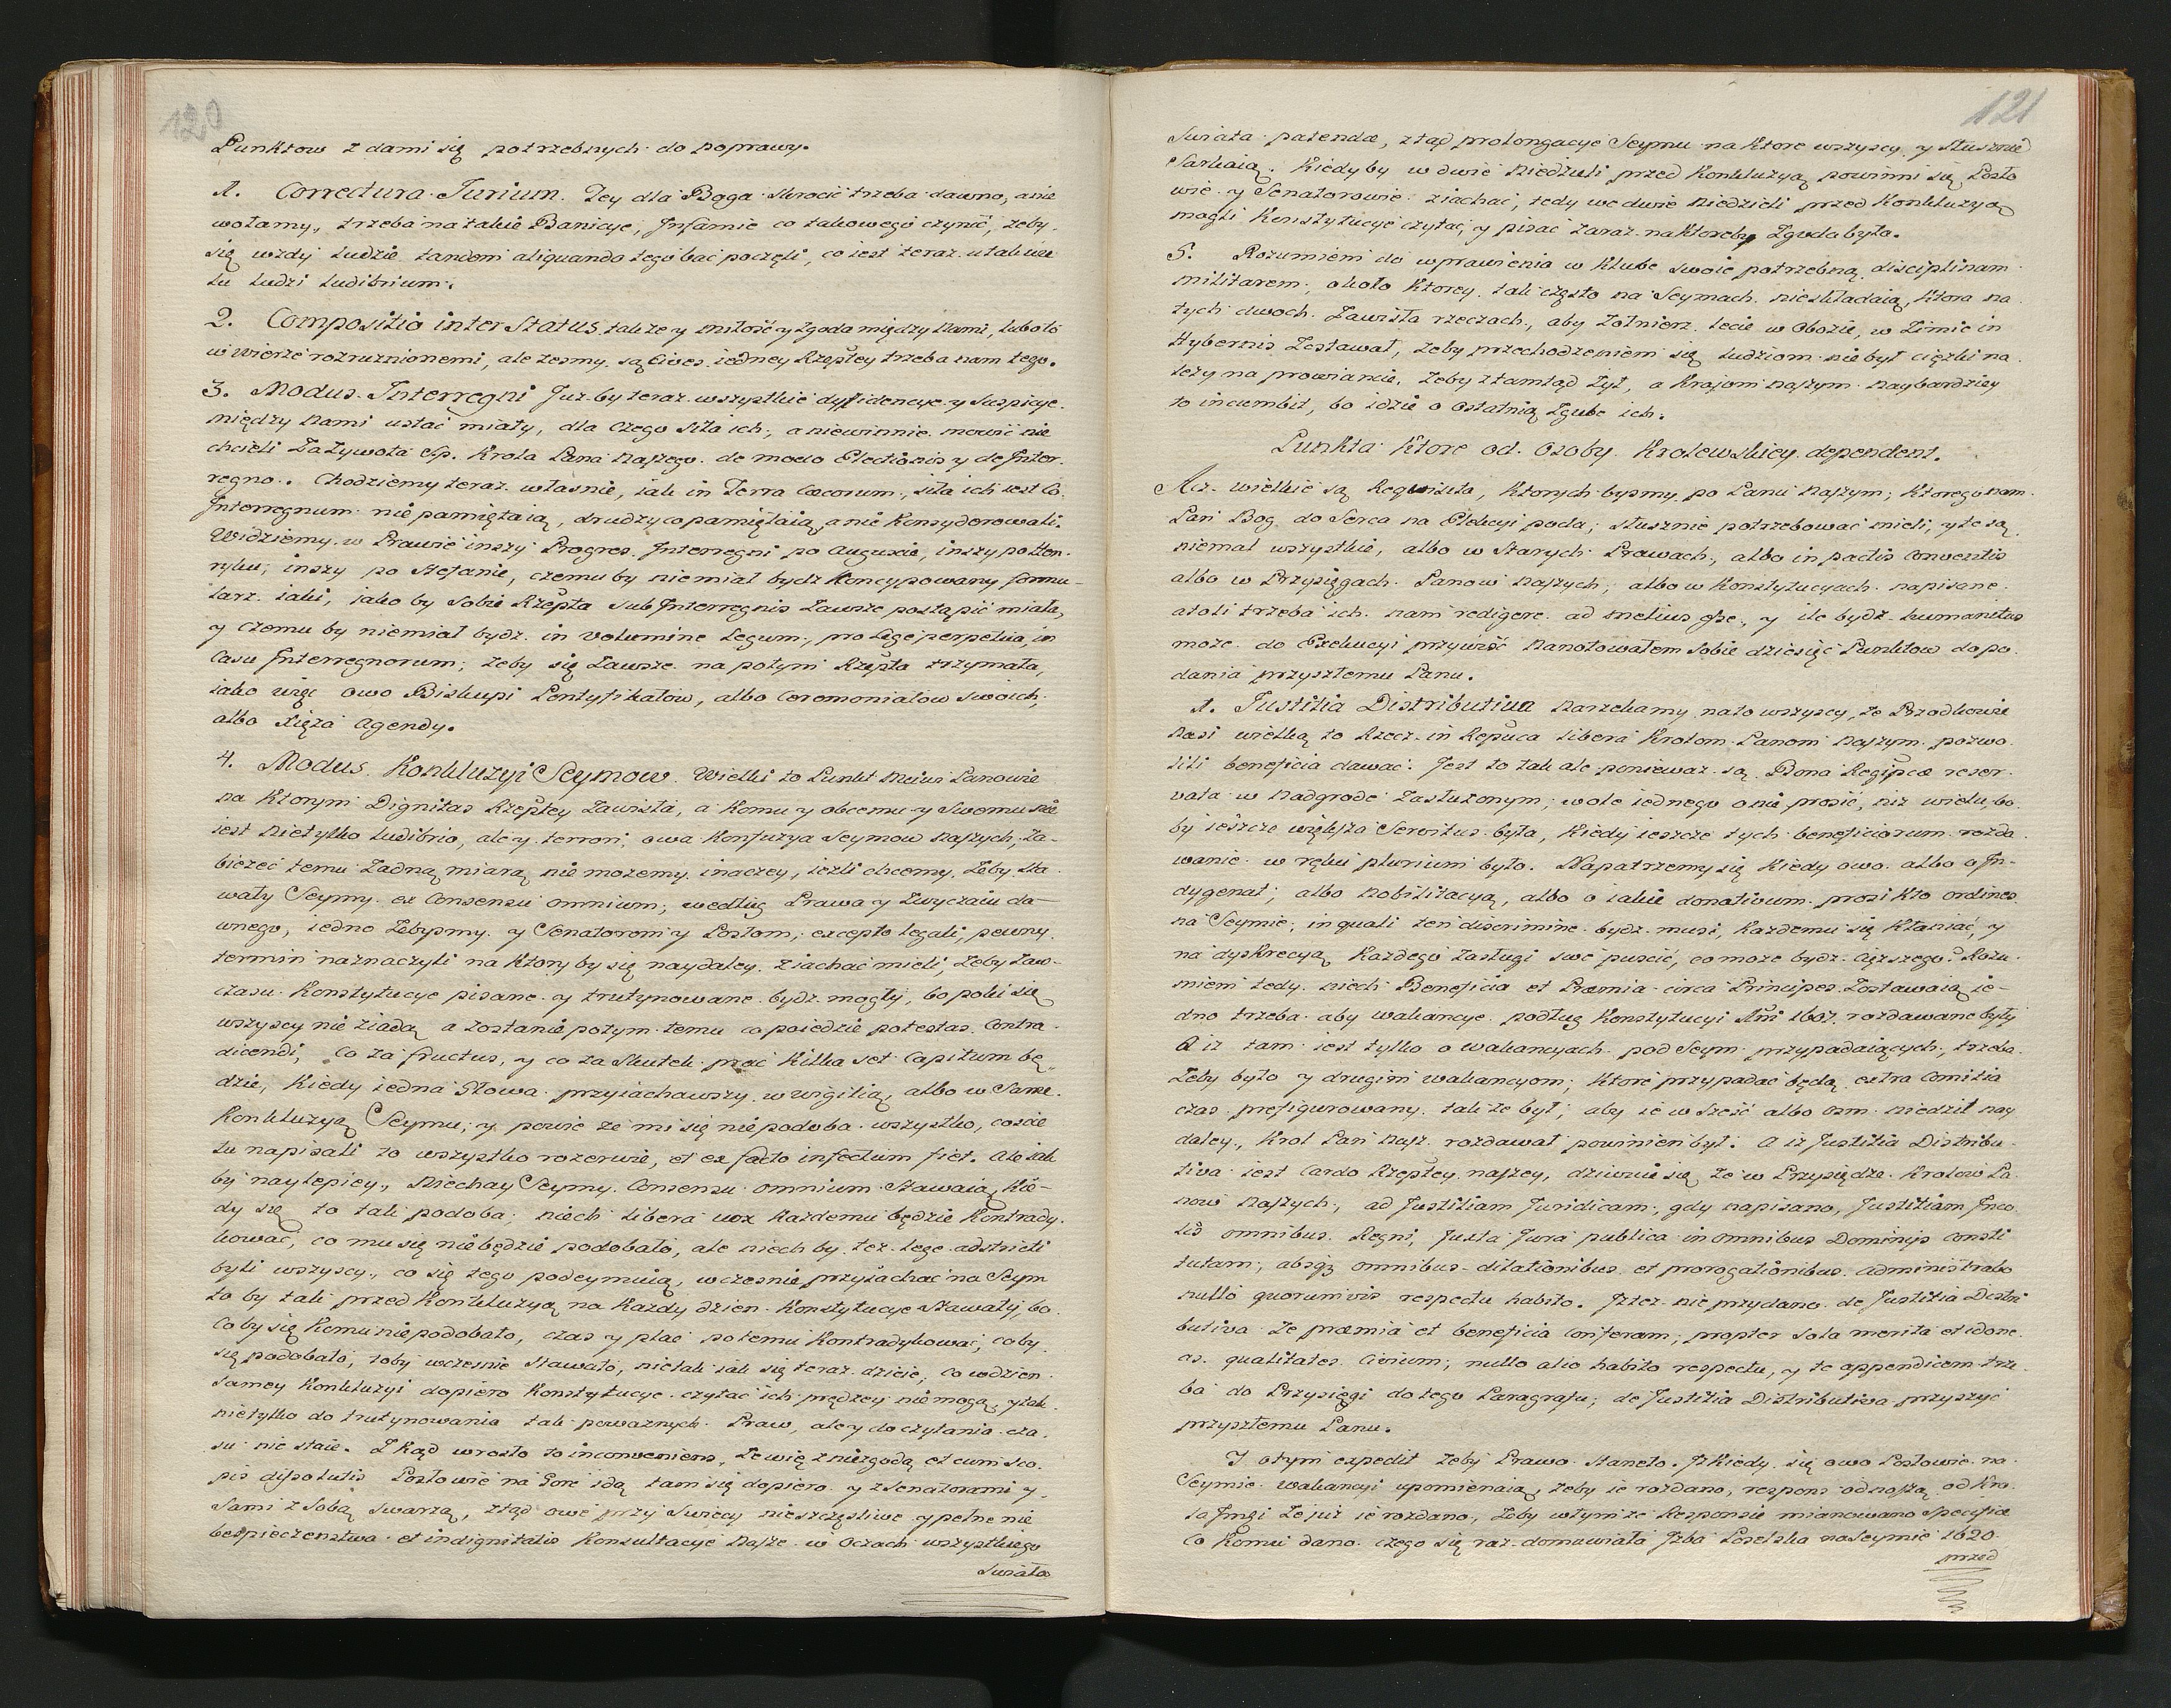 120
Punktow z dami się potrzebnych do poprawy.
1. Correctura Jurium. Tey dla Boga skrocić trzeba dawno, a nie
wołamy, trzeba na takie Banicye, Infamie co takowego czynić, żeby
się wżdy ludzie tandem aliquando tego bać poczęli, co iest teraz u tak wie
lu ludzi ludibrium.
2. Compositio inter Status także y miłość y zgoda między Nami, lubo to
w wierze rozruznionemi, ale żesmy są Cives iedney Rzeptey trzeba nam tego.
3. Modus Interregni Juz by teraz wszystkie dyffidencye y suspicye
między Nami ustać miały, dla czego siła ich, a niewinnie mowić nie
chcieli Za żywota Sp. Krola Pana Naszego de modo Electionis y de Inter-
regno. Chodziemy teraz własnie, iak in Terra Cœcorum, siła ich iest Co
Interregnum nie pamiętaią, drudzy co pamiętaią, a nie Konsyderowali.
Widziemy w Prawie inszy Progres Interregni po Auguscie, inszy po Hen-
ryku, inszy po Stefanie, czemu by niemiał bydz Koncypowany formu-
larz iaki, iako by sobie Rzepta sub Interregnis Zawsze postąpić miała,
y czemu by niemiał bydz in volumine Legum, pro Lege perpetua, in
Casu Interregnorum; żeby się zawsze na potym Rzepta trzymała,
iako więc owo Biskupi Pontyfikałow, albo Ceremoniałow swoich,
albo Xięza Agendy.
4. Modus Konkluzyi Seymow. Wielki to Punkt Moiwi Panowie
na Ktorym Dignitas Rzeptey zawisła, a Komu y obcemu y Swemu nie
iest nietylko ludibrio, ale y terrori, owa Konfuzya Seymow Naszych, Za-
bieżeć temu żadną miarą nie możemy inaczey, ieżli chcemy, żeby sta
wały Seymy ex Consensu omnium, według Prawa y Zwyczaiu da-
wnego, iedno żebysmy y Senatorom y Posłom, excepto legali, pewny
termin naznaczyli na Ktory by się naydaley ziachać mieli, żeby zaw-
czasu Konstytucye pisane y trutynowane bydz mogły, bo poki się
wszyscy nie ziadą a zostanie potym temu co poiedzie potestas Contra-
dicendi, Co za fructus, y co za skutek prac Kilka set Capitum bę-
dzie, Kiedy iedna Głowa przyiachawszy w wigilią, albo w Same
Konkluzyą Seymu, y powie ze mi się nie podoba wszystko, coscie
tu napisali to wszystko rozerwie, et ex facto infectum fiet. Ale iak
by naylepiey, Niechay Seymy Consensu omnium Stawaią Kie-
dy się to tak podoba, niech libera vox Kazdemu będzie Kontrady-
kować, co mu się niebędzie podobało, ale niech by też lege adstricti
byli wszyscy, co się tego podeymuią, wczesnie przyiachać na Seym
to by tak przed Konkluzyą na Kazdy dzien Konstytucye stawały, bo
Coby się Komu niepodobało, czas y plac po temu Kontradykować, coby
się podobało, toby wczesnie stawało, nietak iak się teraz dzieie, Co w dzien
samey Konkluzyi dopiero Konstytucye czytać ich prędzey nie mogą, y tak
nietylko do trutynowania tak powaznych Praw, ale y do czytania cza-
su nie staie. Zkąd wrosło to inconveniens, że wię z niezgodą et cum sco-
pis dissolutis Posłowie na Gorę idą, tam się dopiero y z Senatorami y
Sami z Sobą swarzą, ztąd owe przy Swiecy nieszczęsliwe y pełne nie
bespieczenstwa et indignitatis Konsultacye Nasze w Oczach wszystkiego
Swiata
121
Swiata patendæ, ztąd prolongacye Seymu na Ktore wszyscy y Słusznie
Sarkaią. Kiedyby w dwie Niedzieli przed Konkluzyą powinni się Posło
wie y Senatorowie ziachać, tedy we dwie Niedzieli przed Konkluzyą
mogli Konstytucye czytać, y pisać zaraz na Ktoreby zgoda była.
5. Rozumiem do wprawienia w Klubę swoię potrzebną disciplinam
militarem, około Ktorey tak często na Seymach nieskładaią, Ktora na
tych dwoch Zawisła rzeczach, aby Zołnierz lecie w Obozie, w Zimie in
Hybernis Zostawał, żeby przechodzeniem się ludziom nie był cięzki na
leży na prowiancie, żeby ztamtąd żył, a Kraiom Naszym naybardziey
to incumbit, bo idzie o Ostatnią Zgubę ich.
Punkta Ktore od Osoby Krolewskiey dependent.
Acz wielkie są Requisita, Ktorych bysmy po Panu Naszym, Ktorego nam
Pan Bog do Serca na Elekcyi poda, słusznie potrzebować mieli, y te są
niemal wszystkie, albo w Starych Prawach, albo in pactis Conventis
albo w Przysięgach Panow Naszych, albo w Konstytucyach napisane
atoli trzeba ich nam redigere ad melius esse, y ile bydz humanitus
moze do Exekucyi przywieść Nanotowałem sobie dziesięć Punktow do po
dania przyszłemu Panu.
1. Justitia Distributiva Narzekamy na to wszyscy, że Przodkowie
Nasi wielką to Rzecz in Repuca libera Krolom Panom Naszym pozwo
lili beneficia dawać. Jest to tak ale poniewaz są Bona Regipcæ reser-
vata w Nadgrodę Zasłuzonym, wolę iednego o nie prosić, niz wielu, bo
by ieszcze większa Servitus była, Kiedy ieszcze tych beneficiorum rozda
wanie w ręku plurium było. Napatrzemy się Kiedy owo albo o In-
dygenat, albo Nobilitacyą, albo o iakie donativum prosi Kto ordines
na Seymie, in quali ten discrimine bydz musi, Kazdemu się Kłaniać, y
na dyskrecyą Kazdego Zasługi swe puscić, co moze bydz cięzszego? Rozu
miem tedy niech Beneficia et Præmia circa Principes Zostawaią ie-
dno trzeba aby wakancye podług Konstytucyi Ani 1607. rozdawane były
A iz tam iest tylko o wakancyach pod Seym przypadaiących, trzeba
żeby było y drugim wakancyom, Ktore przypadać będą extra Comitia
czas prefigurowany także był, aby ie w sześć albo osm niedziel nay
daley, Krol Pan Nasz rozdawał powinien był. A iz Justitia Distribu-
tiva iest Cardo Rzeptey naszey, dziwuię się że w Przysiędze Krolow Pa
now Naszych, ad Justitiam Juridicam, gdy napisano, Justitiam Inco
lis omnibus Regni, Juxta Jura publica in omnibus Dominijs consti
tutam, absq3 omnibus dilationibus et prorogationibus administrabo
nullo quorumvis respectu habito. Przecz nie przydano de Justitia Distri
butiva że præmia et beneficia conferam, propter sola merita et idone
as qualitates Civium, nullo alio habito respectu, y te appendicem trze
ba do Przysięgi do tego Paragrafu, de Justitia Distributiva przyszyć
przyszłemu Panu.
I otym expedit żeby Prawo staneło. Iż Kiedy się owo Posłowie na
Seymie wakancyi upominaią, żeby ie rozdano, respons odnoszą od Kro
la Jmsi że juz ie rozdano, żeby w tymże Responsie mianowano specifice
Co Komu dano. czego się raz domawiała Izba Poselska na Seymie 1620.
przed